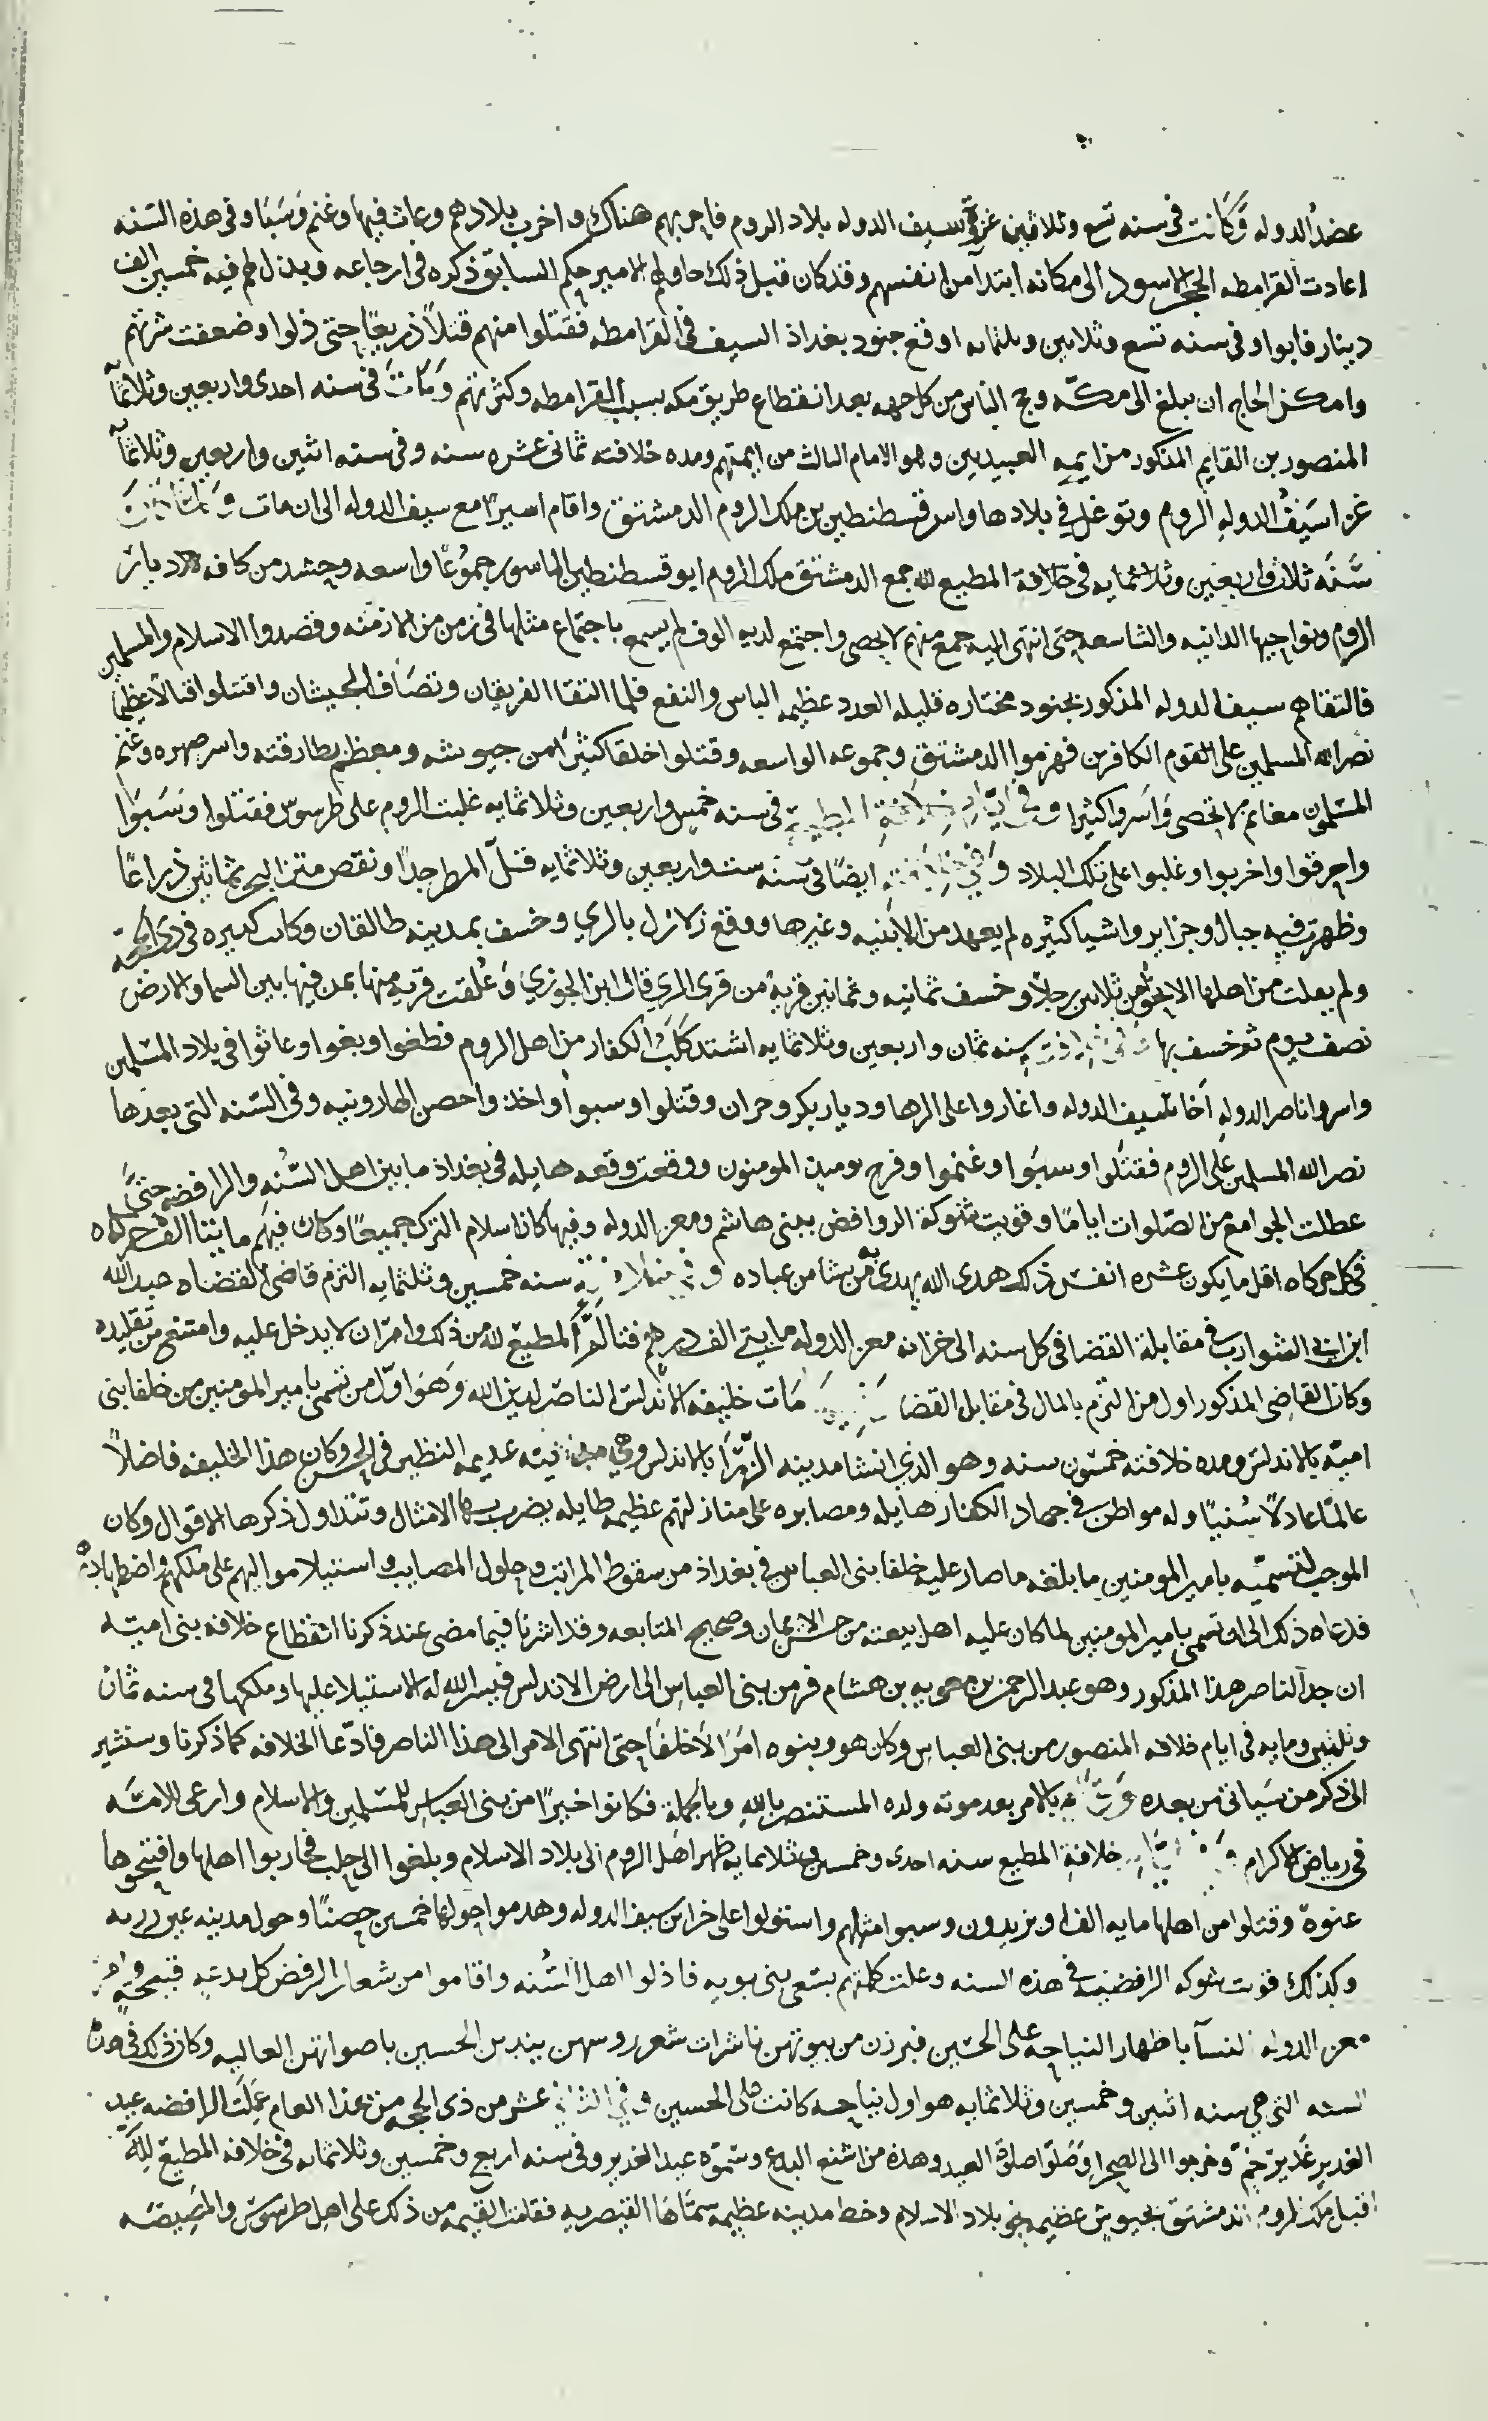 عضد الدوله وكانت فى سنه تسع وثلاثين غزوة سيف الدوله بلاد الروم فاحربهم هناك واخرب بلادهم وعاث فيها وغنم وسبا وفى هذه السنه
اعادت القرامطه الحجر الاسود الى مكانه ابتدآ من انفسهم وقد كان قبل ذلك حاولهم الامير حكم السابق ذكره فى ارجاعه وبذل لهم فيه خمسين الف
دينار فابوا وفى سنه تسع وثلاثين وثلثمايه اوقع جنود بغداذ السيف فى القرامطه فقتلوا منهم قتلاً ذريعًا حتى ذلوا وضعفت شرتهم
وامكن الحاج ان يبلغ الى مكّه وحج الناس من كل جهه بعد انقطاع طريق مكه بسبب القرامطه وكثرتهم ومات فى سنه احدى واربعين وثلاثمآيه
المنصور بن القايم المذكور من ايمه العبيديين وهو الامام الثالث من ايمتهم ومده خلافته ثمانى عشره سنه وفى سنه اثنين واربعين وثلاثمآيه
غزا سيفُ الدوله الروم وتوغل فى بلادها واسر قسطنطين بن ملك الروم الدمشتق واقام اسيرًا مع سيف الدوله الى ان مات ولما كانت
سنَه ثلاث واربعين وثلاثمايه فى خلافة المطيع لله جمع الدمشتق ملك الروم ابو قسطنطين الماسور جموعًا واسعه وحشد من كافه بلاد ديار
الروم ونواحيها الدانيه والشاسعه حتى انتهى اليه جمع منهم لا يحصى واجتمع لديه الوف لم يسمع باجتماع مثلها فى زمن من الازمنه وقصدوا الاسلام والمسلمين
فالتقاهم سيف الدوله المذكور بجنود مختاره قليله العدد عظيمه الباس والنفع فلما التقا الفريقان وتصآف الجيشان واقتتلوا قتالاً عظيمًا
نصر الله المسلمين على القوم الكافرين فهزموا الدمشتق وجموعه الواسعه وقتلوا خلقا كثيرًا من جيوشه ومعظم بطارقته واسر صهره وغنم
المسلمون مغانم لا تحصى واسروا كثيرا وفى ايام خلافة المطيع فى سنه خمس واربعين وثلاثمايه غلبت الروم على طرسوس فقتلوا وسَبَوا
واحرقوا واخربوا وغلبوا على تلك البلاد وفى خلافته ايضًا فى سنه ست واربعين وثلاثمايه قلّ المطر جدًا ونقص متن البحر ثمانين ذراعًا
وظهرت فيه جبال وجزاير واشيا كثيره لم يعهد من الابنيه وغيرها ووقع زلازل بالري وخسف بمدينه طالقان وكانت كبيره فى ذى الحجه
ولم يفلت من اهلها الا نحوٌ من ثلاثين رجلاً وخسف ثمانيه وثمانين قرية من قرى الري قال ابن الجوزي وعُلقت قريه منها بمن فيها بين السما والارض
نصف يوم ثم خسف بها وفى سنه ثمان واربعين وثلاثمايه اشتد كَلَبُ الكفار من اهل الروم فطغوا وبغوا وعاثوا فى بلاد المسلمين
واسروا ناصر الدوله اخا سيف الدوله واغاروا على الرها وديار بكر وحران وقتلوا وسبوا واخذوا حصن الهارونيه وفى السّنه التى بعدها
نصر الله المسلمين على الروم فقتلوا وسبَوا وغنموا وفرح يوميذ المومنون ووقعت وقعه هايله فى بغداذ ما بين اهل السُّنه والرافضه حتى
عطلت الجوامع من الصّلوات ايامًا وقويت شوكة الروافض ببنى هاشم ومعز الدوله وفيها كان اسلام الترك جميعًا وكان فيهم مايتا الف خركاه
فى كل خركاه اقل ما يكون عشره انفس ذلك هدى الله يهدى به من يشا من عباده وفى خلافته سنه خمسين وثلثمايه التزم قاضى القضاه عبد الله
ابن ابى الشوارب فى مقابلة القضا فى كل سنه الى خزانه معز الدوله مايتى الف درهم فتالَّمَ المطيع لله من ذلك وامر ان لا يدخل عليه وامتنع من تقليده
وكان القاضى المذكور اول من التزم بالمال فى مقابل القضا مات خليفه الاندلس الناصر لدين الله وهو اوّل من تسمى بامير المومنين من خلفا بنى
اميّه بالاندلس ومده خلافته خمسون سنه وهو الذي انشا مدينه الزّهرآ بالاندلس وهى مدينه عديمه النظير فى الحسن وكان هذا الخليفه فاضلاً
عالمًا عادلاً سُنيًا وله مواطن فى جهاد الكفار هايله ومصابره على منازلتهم عظيمه طايله يضرب بها الامثال وتتداول ذكرها الاقوال وكان
الموجب لتسميّه بامير المومنين ما بلغه ما صار عليه خلفا بنى العباس فى بغداذ من سقوط المراتب وحلول المصايب واستيلا مواليهم على ملكهم واضطهادهم
فدعاه ذلك الى ان تسمى بامير المومنين لما كان عليه اهل بيعته من حسن الايمان وصحيح المتابعه وقد اشرنا فيما مضى عند ذكرنا انقطاع خلافه بنى اميّه
ان جدّ الناصر هذا المذكور وهو عبد الرحمن بن معويه بن هشام فر من بنى العباس الى ارض الاندلس فيسر الله له الاستيلا عليها وملكها فى سنه ثمان
وثلثين ومايه فى ايام خلافه المنصور من بنى العباس وكان هو وبنوه امرَا لا خلفَا حتى انتهى الامر الى هذا الناصر فادّعا الخلافه كما ذكرنا وسنشير
الى ذكر من سَياتى من بعده بالامر بعد موته ولده المستنصر بالله وبالجملة فكانوا خيرًا من بنى العباس للمسلمين والاسلام وارعى للامّه
فى رياض الاكرام وفى ايام خلافة المطيع سنه احدى وخمسين وثلاثمايه ظهر اهل الروم الى بلاد الاسلام وبلغوا الى حلب فحاربوا اهلها وافتتحوها
عنوة وقتلوا من اهلها مايه الف او يزيدون وسبوا امثالهم واستولوا على خزاين سيف الدوله وهدموا حولها خمسين حصنًا وحول مدينه عين زربه
وكذلك قوت شوكه الرافضيه فى هذه السنه وعلت كلمتهم بسعى بنى بويه فاذلوا اهل السُّنه واقاموا من شعار الرفض كل بدعه قبيحه وامر
معز الدوله النسآ باظهار النياحه على الحسين فبرزن من بيوتهن ناشرات شعور روسهن يندبن الحسين باصواتهن العاليه وكان ذلك فى هذه
السنه التى هى سنه اثنين وخمسين وثلاثمايه هو اول نياحه كانت على الحسين وفى الثانى عشر من ذى الحجه من هذا العام عملت الرافضه عيد
الغدير غديرَ خُمّ وخرجوا الى الصحرا وصَلوا صلوة العيد وهذه من اشنع البدع وسَمّوه عيد الغدير وفى سنه اربع وخمسين وثلاثمايه فى خلافه المطيع لِلّه
اقبل ملك الروم الدمشتق بجيوش عظيمه نحو بلاد الاسلام وخط مدينه عظيمه سمّاها القيصريه فقامت القيمه من ذلك على اهل طرسوس والمصيصَه